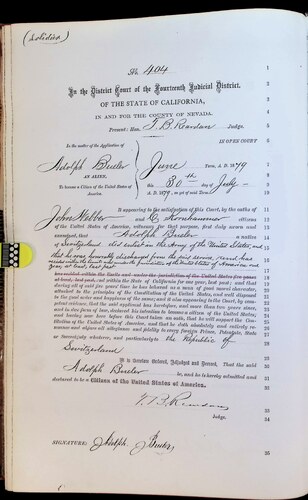 (Soldier)
No. 404
In the District Court of the Fourteenth Judicial District.
OF THE STATE OF CALIFORNIA,
IN AND FOR THE COUNTY OF NEVADA.
Present: Hon. T. B. Reardan Judge.
In the matter of the Application of
Adolph Bueler
AN ALIEN,
To become a Citizen of the United States of America.
IN OPEN COURT
June Term, A. D. 1879
this 30th day of July
A. D. 1879, as yet of said Term.
It appearing to the satisfaction of this Court, by the oaths of
John Webber and C. Kornhammer citizens
of the United States of America, witnesses for that purpose, first duly sworn and
examined, that Adolph Bueler a native
of Switzerland did enlist in the Army of the United States, and
that he was honorably discharged from the said service, and has
resided within the limits and under the jurisdiction of the United States of America one
year, at least, last past
and within the State of California for one year last past; and that
during all of said five years' time he has behaved as a man of good moral character,
attached to the principles of the Constitution of the United States, and well disposed
to the good order and happiness of the same; and it also appearing to the Court, by
evidence, that the said applicant has heretofore, and more than two years since,
and in due form of law, declared his intention to become a citizen of the United States,
and having now here before this Court taken an oath, that he will support the Constitution
of the United States of America, and that he doth absolutely and entirely renounce
and abjure all allegiance and fidelity to every foreign Prince, Potentate, State
or Sovereignty whatever, and particularly to the Republic of
Switzerland
It is therefore Ordered, Adjudged and Decreed, That the said
Adolph Bueler be, and he is hereby admitted and
declared to be a Citizen of the United States of America.
T. B. Reardan
Judge.
SIGNATURE: Adolph Bueler